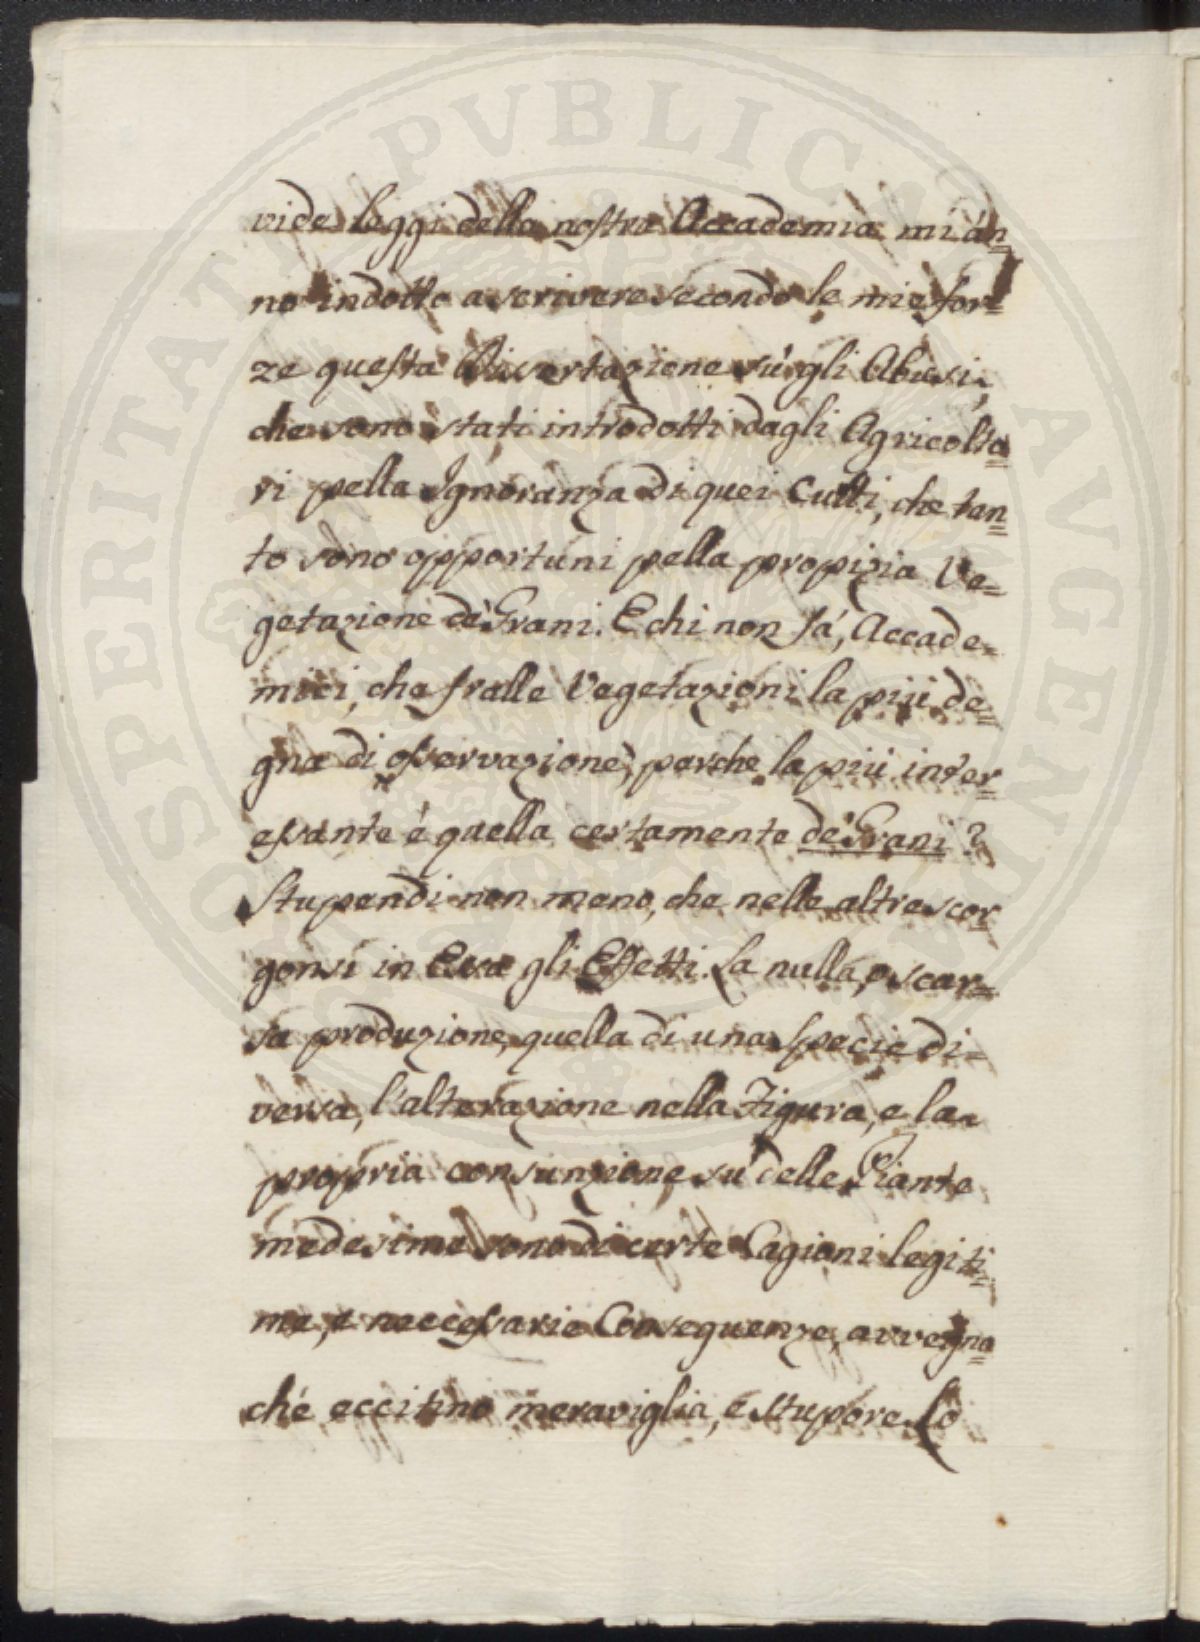 vide leggi della nostra Accademia mi án=
no indotto a scrivere secondo le mie for=
ze questa Dissertazione sù gli Abusi,
che sono stati introdotti dagli Agricolto=
ri pella Ignoranza di quei Cultti, che tan=
to sono opportuni pella propizia Ve=
getazione de' Grani. E chi non sá, Accade=
mici, che fralle Vegetazioni la più de=
gna di osservazione, perche la più inter=
essante é quella certamente de' Grani?
Stupendi non meno, che nelle altre scor=
gonsi in Essa gli Effetti. La nulla, o scar=
sa produzione, quella di una specie di=
versa, l'alterazione nella Figura, e la
propria consunzione sù delle Piante
medesime sono di certe Cagioni legiti=
me, e neccessarie Conseguenze, avvegna=
ché eccitino meraviglia, e stupore. Lo
SOSPERITATI PVBLICAE AVGENDAE